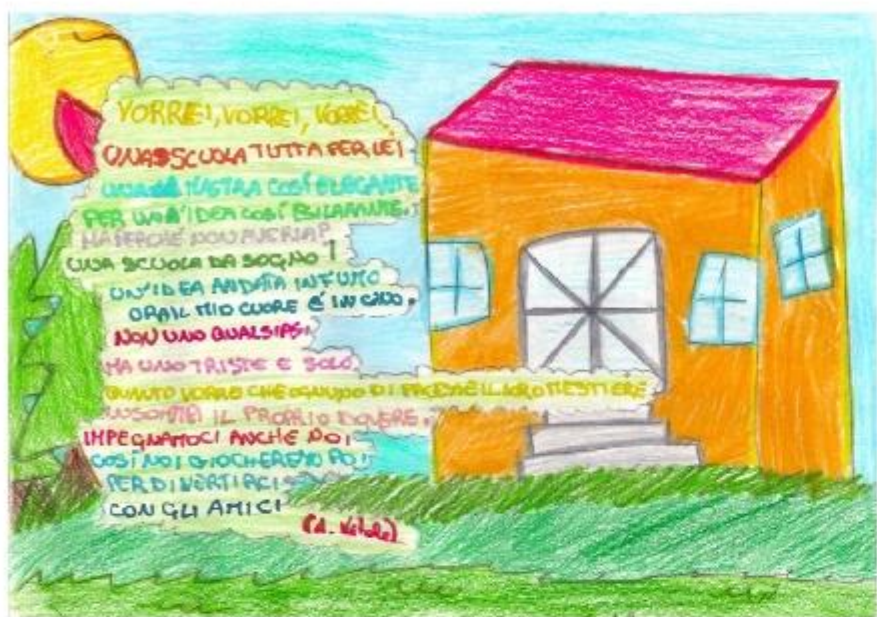 VORREI, VORREI, VORREI...
UNA SCUOLA TUTTA PER LEI
UNA MAESTRA COSÍ ELEGANTE
PER UN'IDEA COSÍ
MA PERCHÉ NON
UNA SCUOLA DA SOGNO!
UN'IDEA ANDATA IN FUMO
ORA IL MIO CUORE É IN
NON UNO QUALSIASI
MA UNO TRISTE E SOLO.
QUANTO VORREI CHE OGNUNO DI FACESSE IL LORO MESTIERE
INSOMMA IL PROPRIO DOVERE.
IMPEGNAMOCI ANCHE NOI
COSÍ NOI GIOCHEREMO POI
PER DIVERTIRCI
CON GLI AMICI